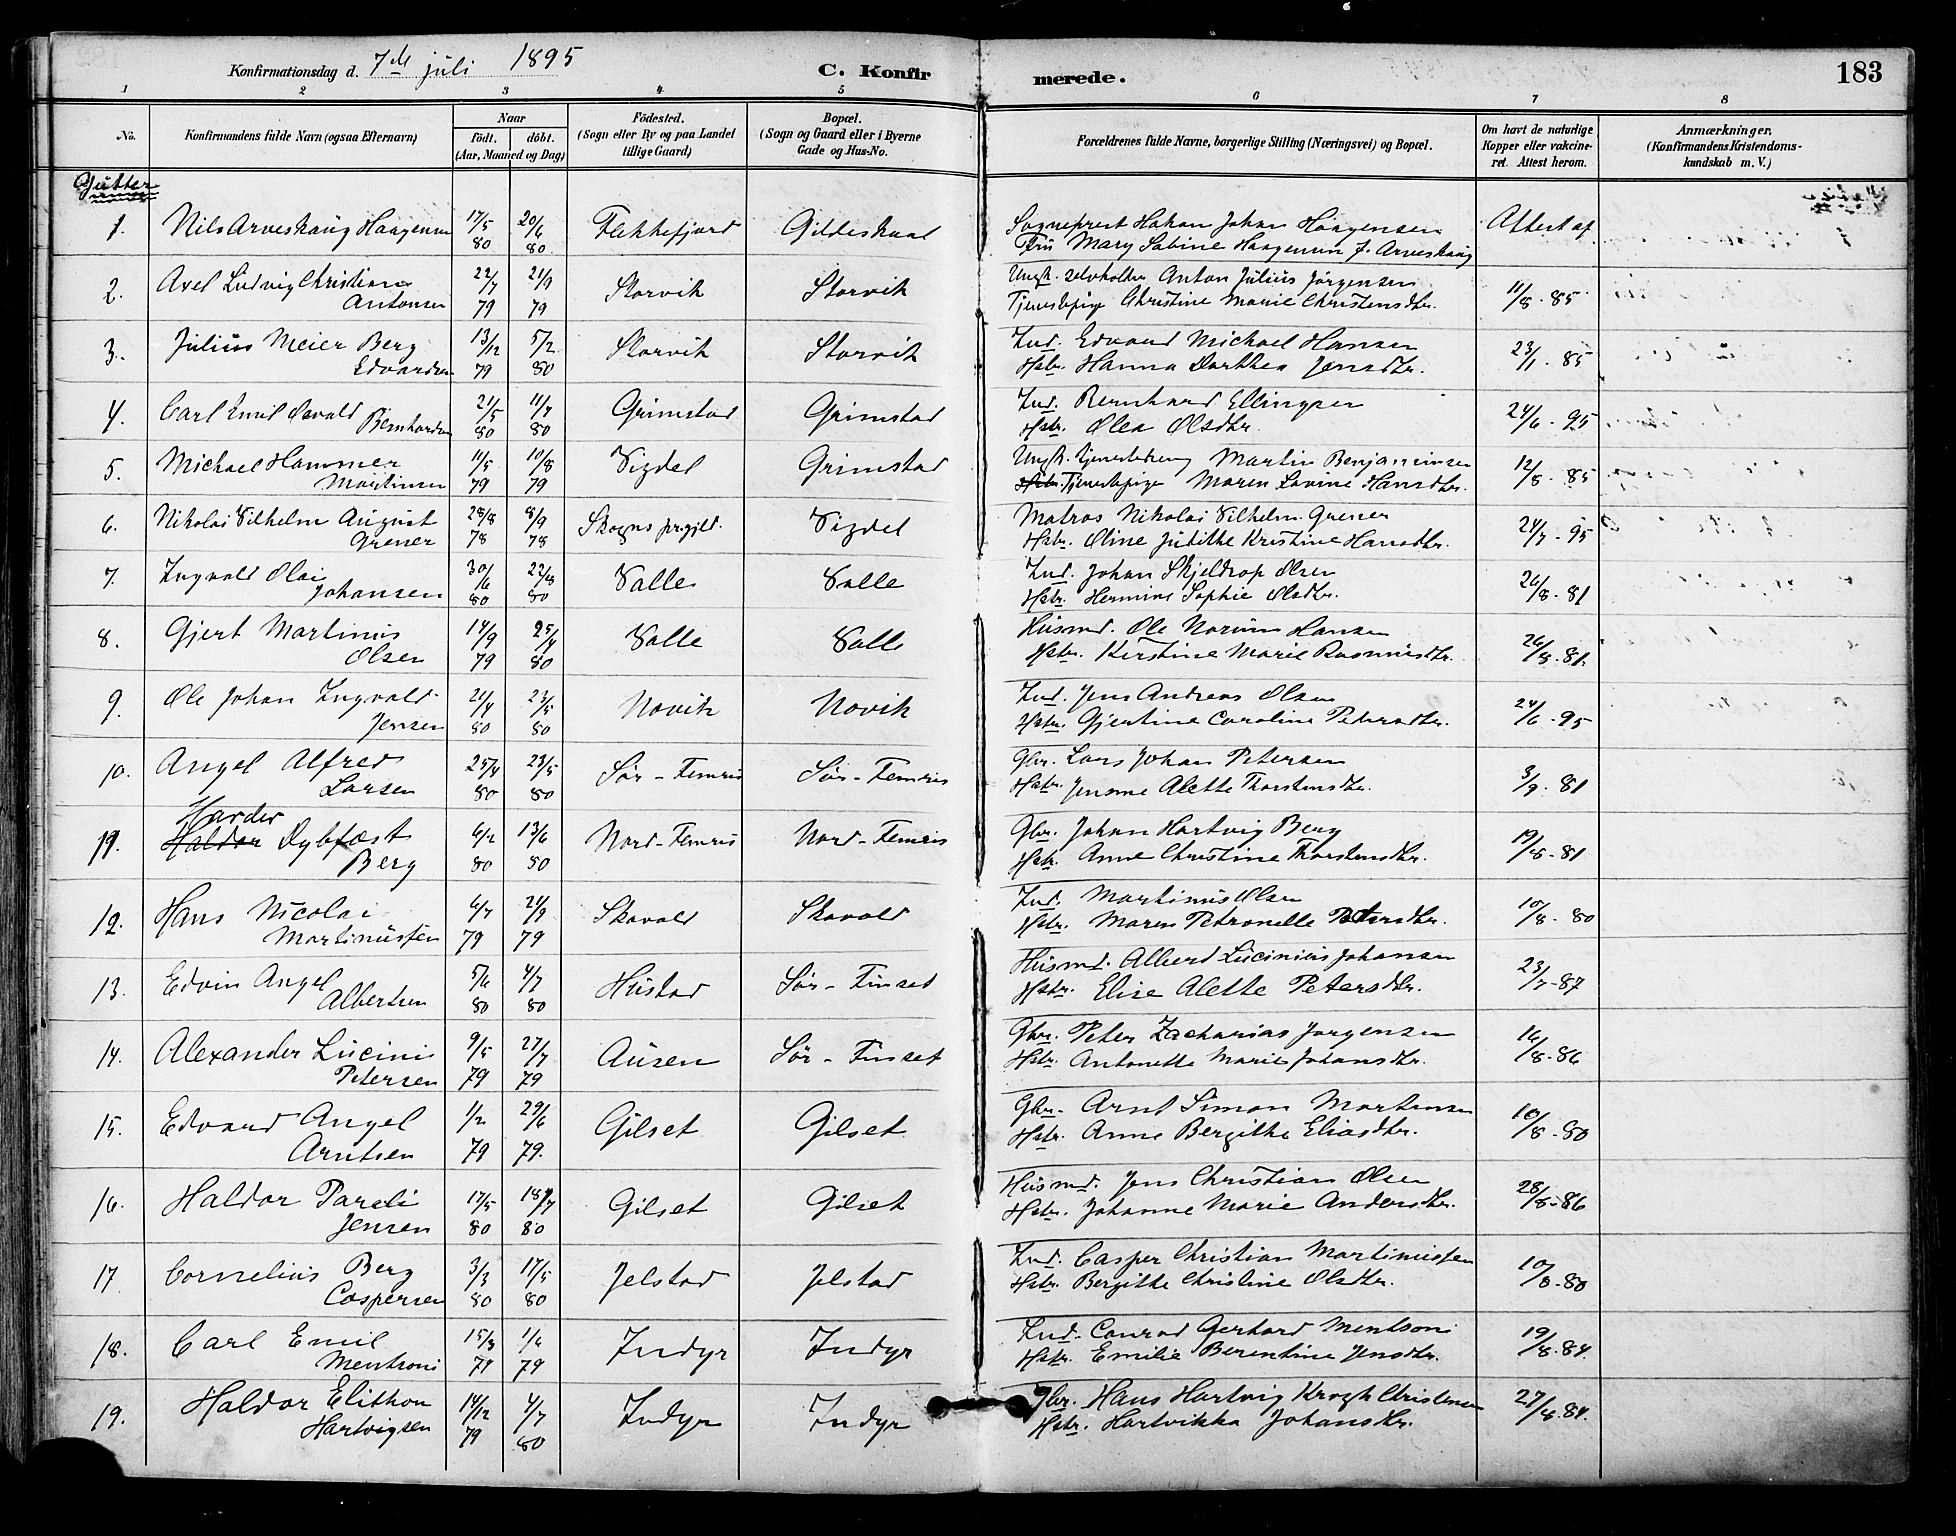 Konfirmationsdag d. 7de juli 1895 C. Konfirmerede. 183
1 2 3 4 5 6 7 8
No. Konfirmandens fulde Navn (ogsaa Efternavn) Naar født. døbt. (Aar, Maaned og Dag) Fødested. (Sogn eller By og paa Landet tillige Gaard) Bopæl. (Sogn og Gaard eller i Byerne Gade og Hus-No. Forældrenes fulde Navne, borgerlige Stilling (Næringsvei) og Bopæl. Om havt de naturlige Kopper eller vakcineret. Attest herom. Anmærkninger. (Konfirmandens Kristendomskundskab m. V.)
Gutter
1. Nils Arveskaug Haagensen 17/5 80 20/6 80 Flekkefjord Gildeskaal Sogneprest Hakan Johan Haagensen Attest af
Fru Mary Sabine Haagensen f. Arveskaug
2. Axel Ludvig Christian Antonsen 22/7 79 21/9 79 Storvik Storvik Ungk. selvholder Anton Julius Jørgensen 11/8-85
Tjenestepige Christine Marie Christensdtr.
3. Julius Meier Berg Edvardsen 13/12 79 5/2 80 Storvik Storvik Ind. Edvard Michael Hansen 23/1-85
Hstr. Hanna Dorthea Jensdtr.
4. Carl Emil Osvald Bernhardsen 21/5 80 11/7 80 Grimstad Grimstad Ind. Bernhard Ellingsen 24/6-95
Hstr. Olea Olsdtr.
5. Michael Hammer Martinsen 11/5 79 10/8 79 Vigdel Grimstad Ungk. tjenestedreng Martin Benjaminsen 12/8-85
Tjenestepige Maren Lovine Hansdtr.
6. Nikolai Vilhelm August Grener 28/8 78 8/9 78 Skogns prgjld. Vigdel Matros Nikolai Vilhelm Grener 24/7-95
Hstr. Oline Judithe Kristine Hansdtr.
7. Ingvald Olai Johansen 30/6 80 22/8 80 Valle Valle Ind. Johan Skjeldrop Olsen 26/8-81
Hstr. Hermine Sophie Olsdtr.
8. Gjert Martinus Olsen 14/9 79 25/4 80 Valle Valle Husmd. Ole Norum Hansen 26/8-81.
Hstr. Kirstine Marie Rasmusdtr.
9. Ole Johan Ingvald Jensen 21/4 80 23/5 80 Novik Novik Ind. Jens Andreas Olsen 24/6-95
Hstr. Gjertine Caroline Petersdtr.
10. Angel Alfred Larsen 25/4 80 23/5 80 Sør-Femris Sør-Femris Gbr. Lars Johan Petersen 3/9-81
Hstr. Jensine Alette Thorstensdtr.
11. Harder Haldor Dybfest Berg 6/2 80 13/6 80 Nord-Femris Nord-Femris Gbr. Johan Hartvig Berg 19/8-81
Hstr. Anne Christine Thorstensdtr.
12. Hans Nicolai Martinussen 6/7 79 21/9 79 Skavold Skavold Ind. Martinus Olsen 10/8-80
Hstr. Maren Petronelle Petersdtr.
13. Edvin Angel Albertsen 5/6 80 4/7 80 Hustad Sør-Finset Husmd. Alberd Lucinius Johansen 23/7-87
Hstr. Elise Alette Petersdtr.
14. Alexander Lucini Petersen 9/5 79 27/7 79 Ausen Sør-Finset Gbr. Peter Zacharias Jørgensen 16/8-86
Hstr. Antonette Marie Johansdtr.
15. Edvard Angel Arntsen 1/2 79 29/6 79. Gilset Gilset Gbr. Arnt Simon Martinsen 10/8-80
Hstr. Anne Bergithe Eliasdtr.
16. Haldor Pareli Jensen 17/5 80 18/7 80 Gilset Gilset Husmd. Jens Christian Olsen 28/8-86
Hstr. Johanne Marie Andersdtr.
17 Cornelius Berg Caspersen 3/3 80 17/5 80 Jelstad Jelstad Ind. Casper Christian Martinussen 10/8-80
Hstr. Bergithe Christine Olsdtr.
18. Carl Emil Mentsoni 15/3 79 1/6 79 Indyr Indyr Ind. Conrad Gerhard Mentsoni 19/8-84.
Hstr. Emilie Berentine Jensdtr.
19. Haldor Elithon Hartvigsen 14/12 79 4/7 80 Indyr Indyr Gbr. Hans Hartvig Krogh Christensen 27/8-84.
Hstr. Hartvikka Johansdtr.